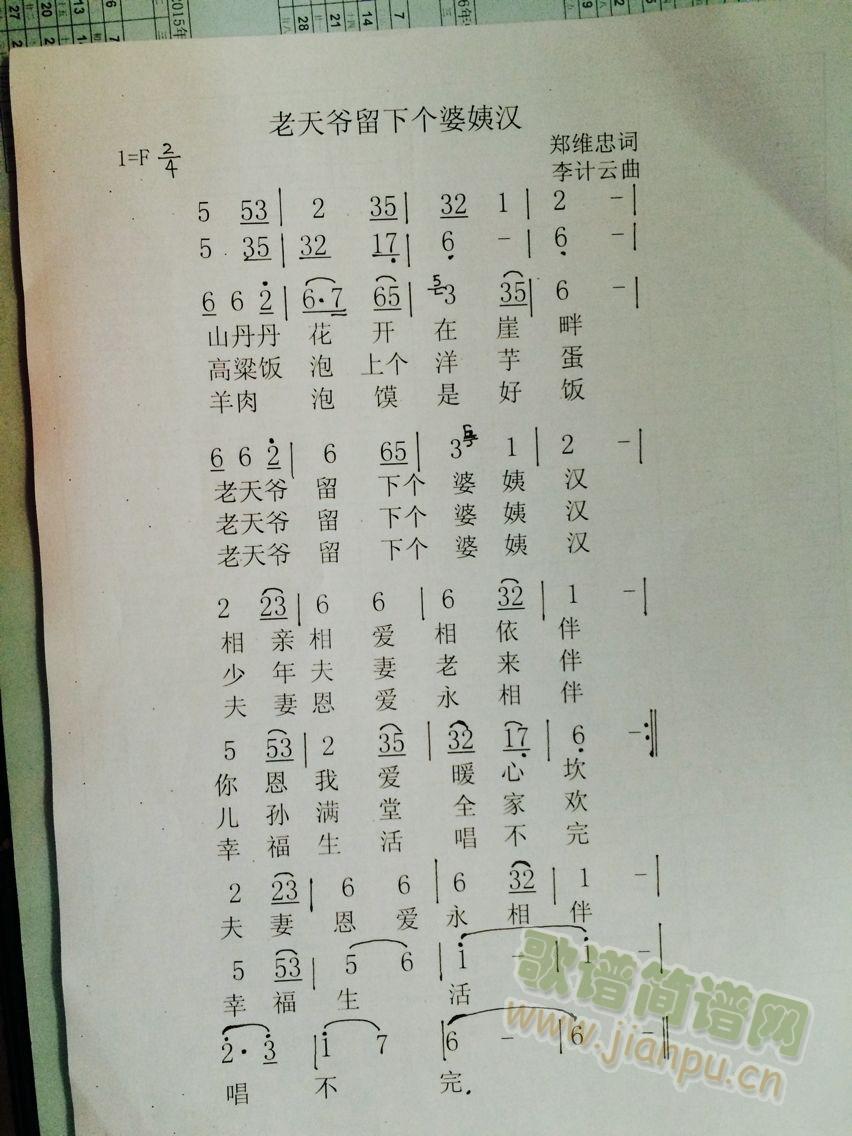 老天爷留下个婆姨汉
1=F 2/4
郑维忠词
李计云曲
5 53 | 2 35 | 32 1 | 2 - |
5 35 | 32 17 | 6 - | 6 - |
6 6 2 | 6·7 65 | 5 3 35 | 6 - |
山丹丹 花 开 在 崖 畔
高粱饭 泡 上个 洋 芋 蛋
羊肉 泡 馍 是 好 饭
6 6 2 | 6 65 | 3 5 1 | 2 - |
老天爷 留 下个 婆 姨 汉
老天爷 留 下个 婆 姨 汉
老天爷 留 下个 婆 姨 汉
2 23 | 6 6 | 6 32 | 1 - |
相 亲 相 爱 相 依 伴
少 年 夫 妻 老 来 伴
夫 妻 恩 爱 永 相 伴
5 53 | 2 35 | 32 17 | 6 - :‖
你 恩 我 爱 暖 心 坎
儿 孙 满 堂 全 家 欢
幸 福 生 活 唱 不 完
2 23 | 6 6 | 6 32 | 1 - |
夫 妻 恩 爱 永 相 伴
5 53 | 5 6 | 1 - | 1 - |
幸 福 生 活
2· 3 | 1 7 | 6 - | 6 - ‖
唱 不 完.
歌谱简谱网
www.jianpu.cn